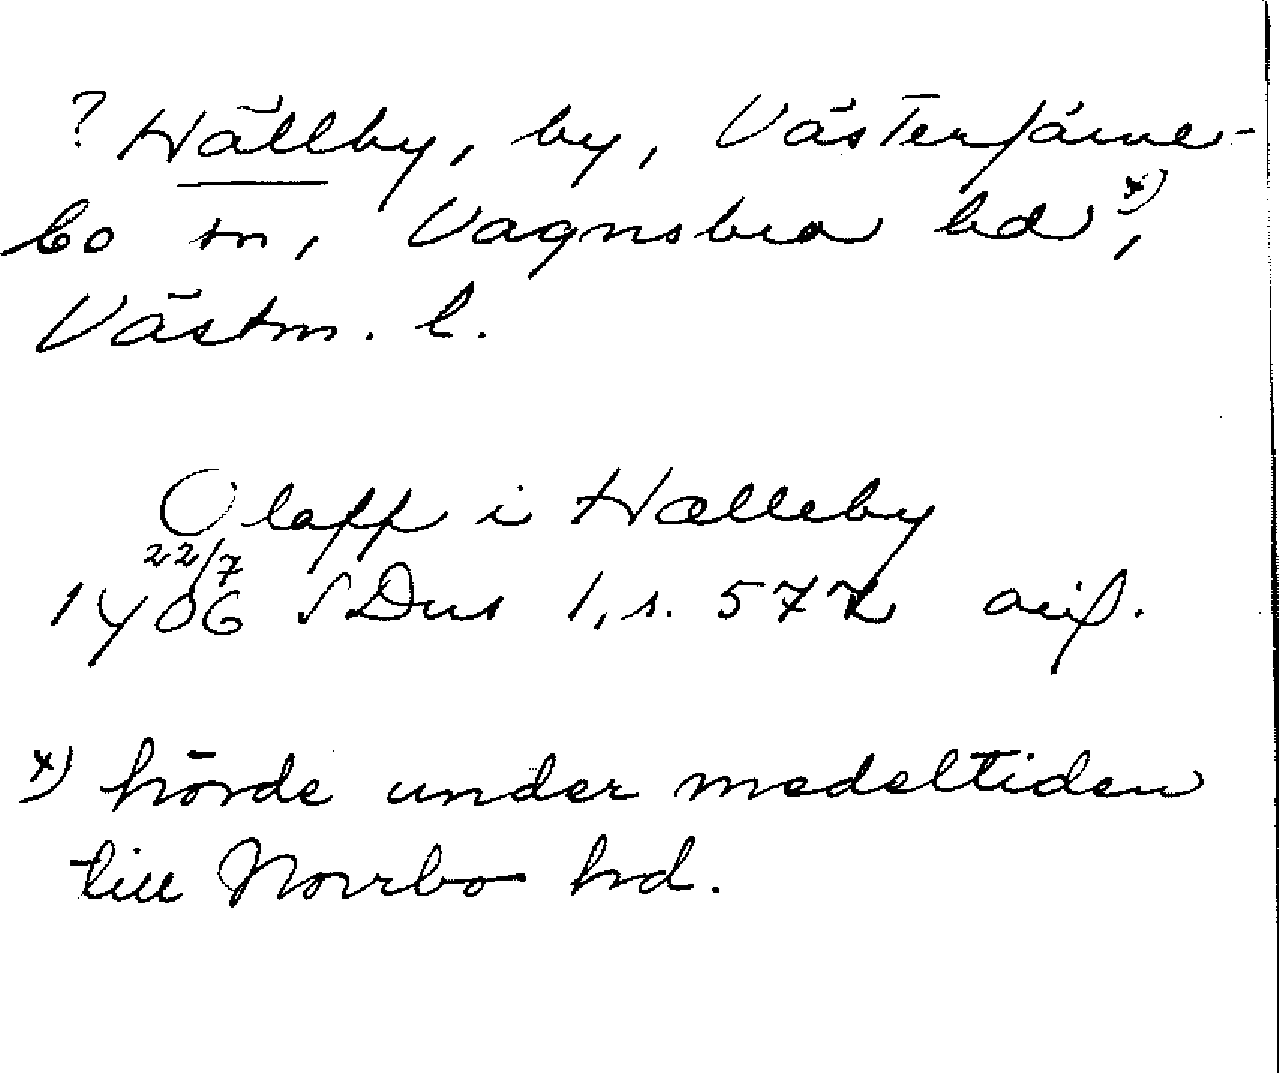 ? Hällby, by, Västerfärne-
bo sn, Vagnsbro hd x),
Västm. l.
Olaff i Hælleby
22/7
1406 SDns 1, s. 572 avs.
x) hörde under medeltiden
till Norrbo hd.